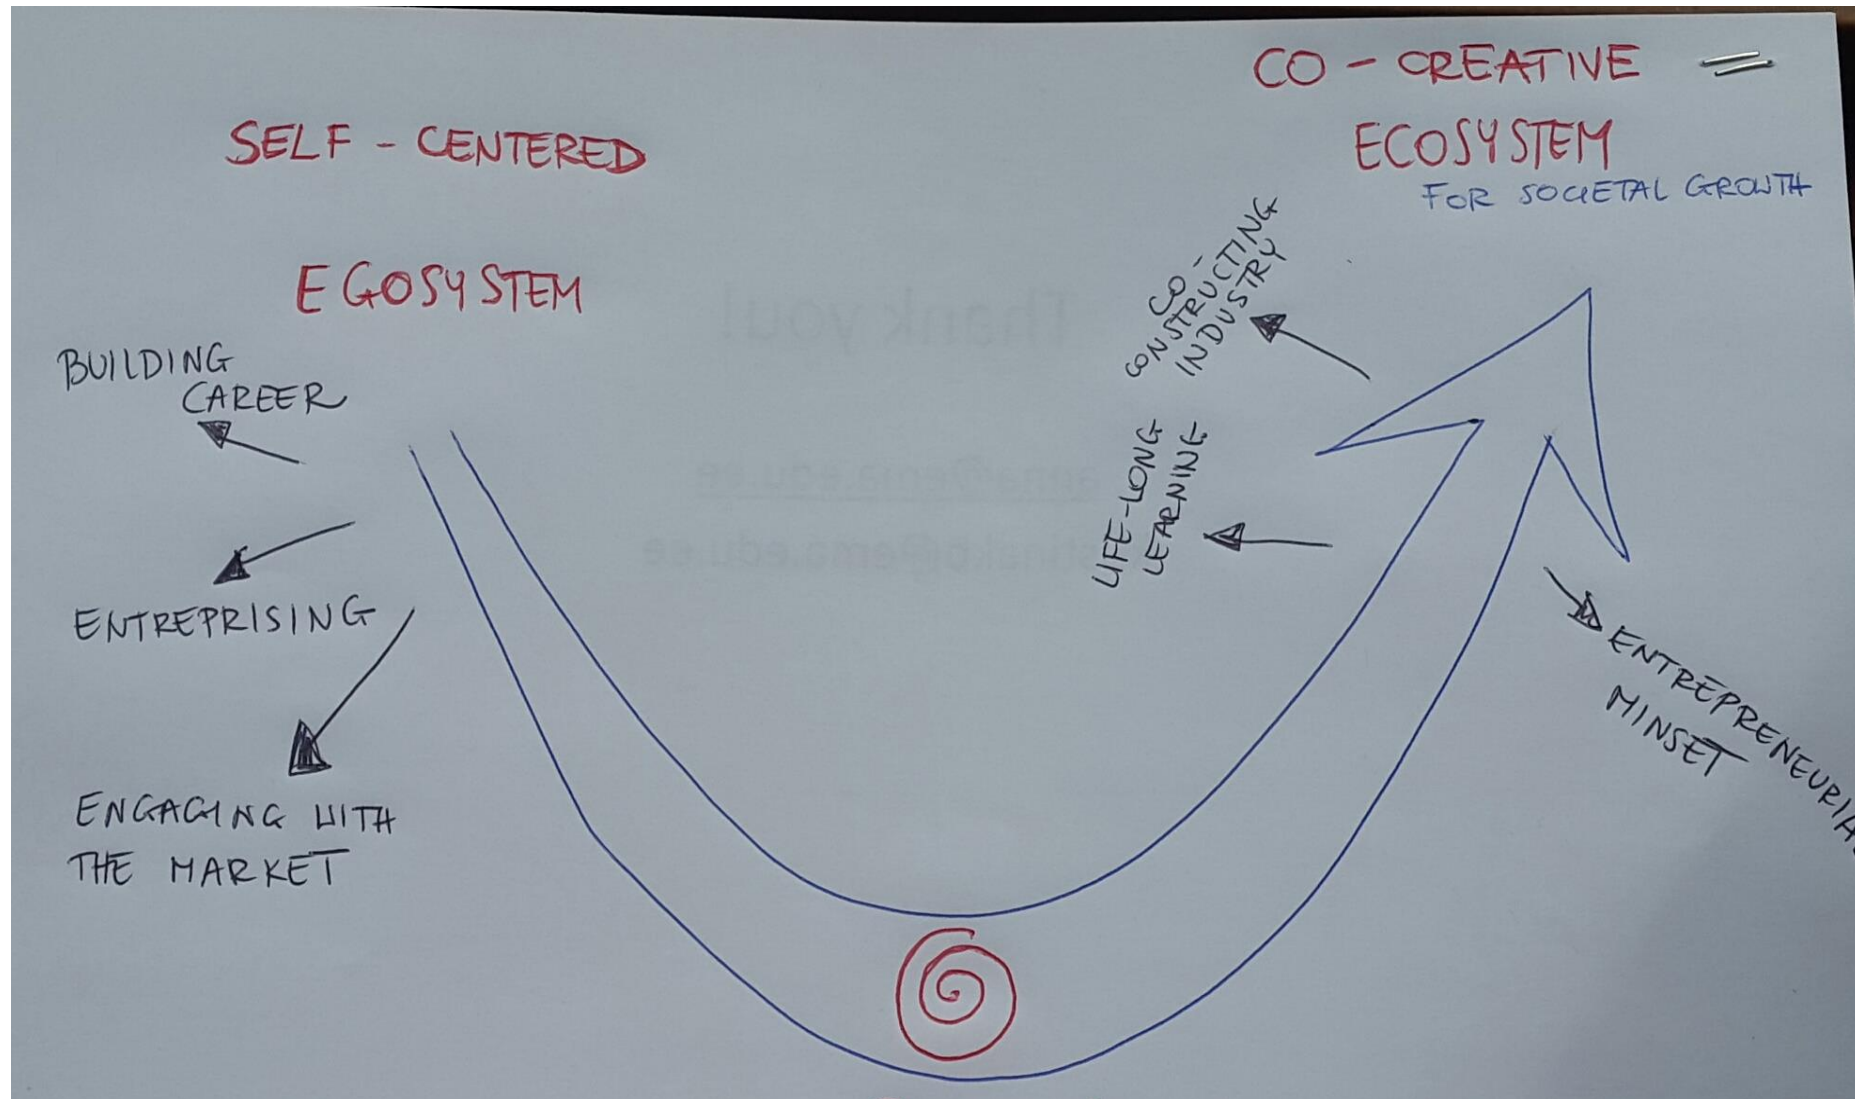 SELF - CENTERED
EGOSYSTEM
BUILDING
CAREER
ENTREPRISING
ENGAGING WITH
THE MARKET
CO - CREATIVE
ECOSYSTEM
FOR SOCIETAL GROWTH
CO -
CONSTRUCTING
INDUSTRY
LIFE-LONG
LEARNING
ENTREPRENEURIAL
MINSET
Thank you!
anna@ema.edu.ee